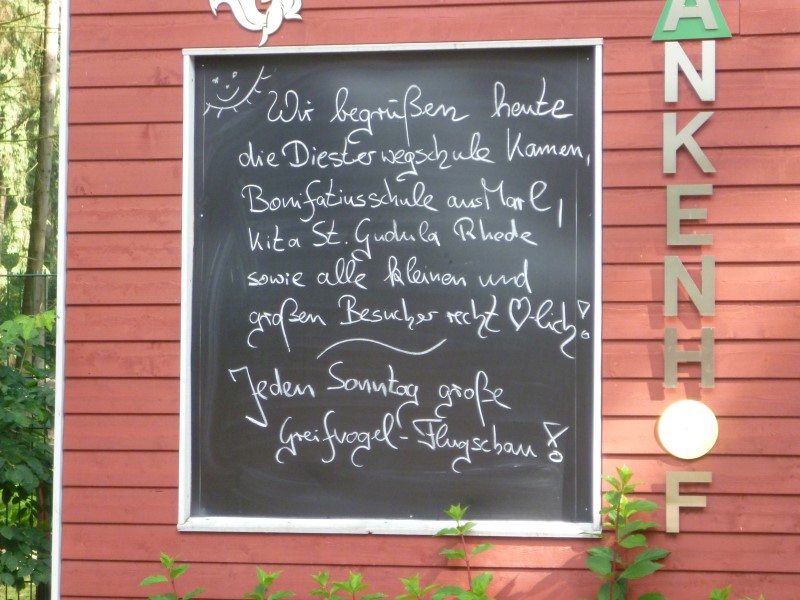 Wir begrüßen heute
die Diesterwegschule Kamen,
Bonifatiusschule aus Marl,
Kita St. Gudula Rhede
sowie alle kleinen und
großen Besucher recht ♡-lich!
Jeden Sonntag große
Greifvogel-Flugschau!
ANKENHOF